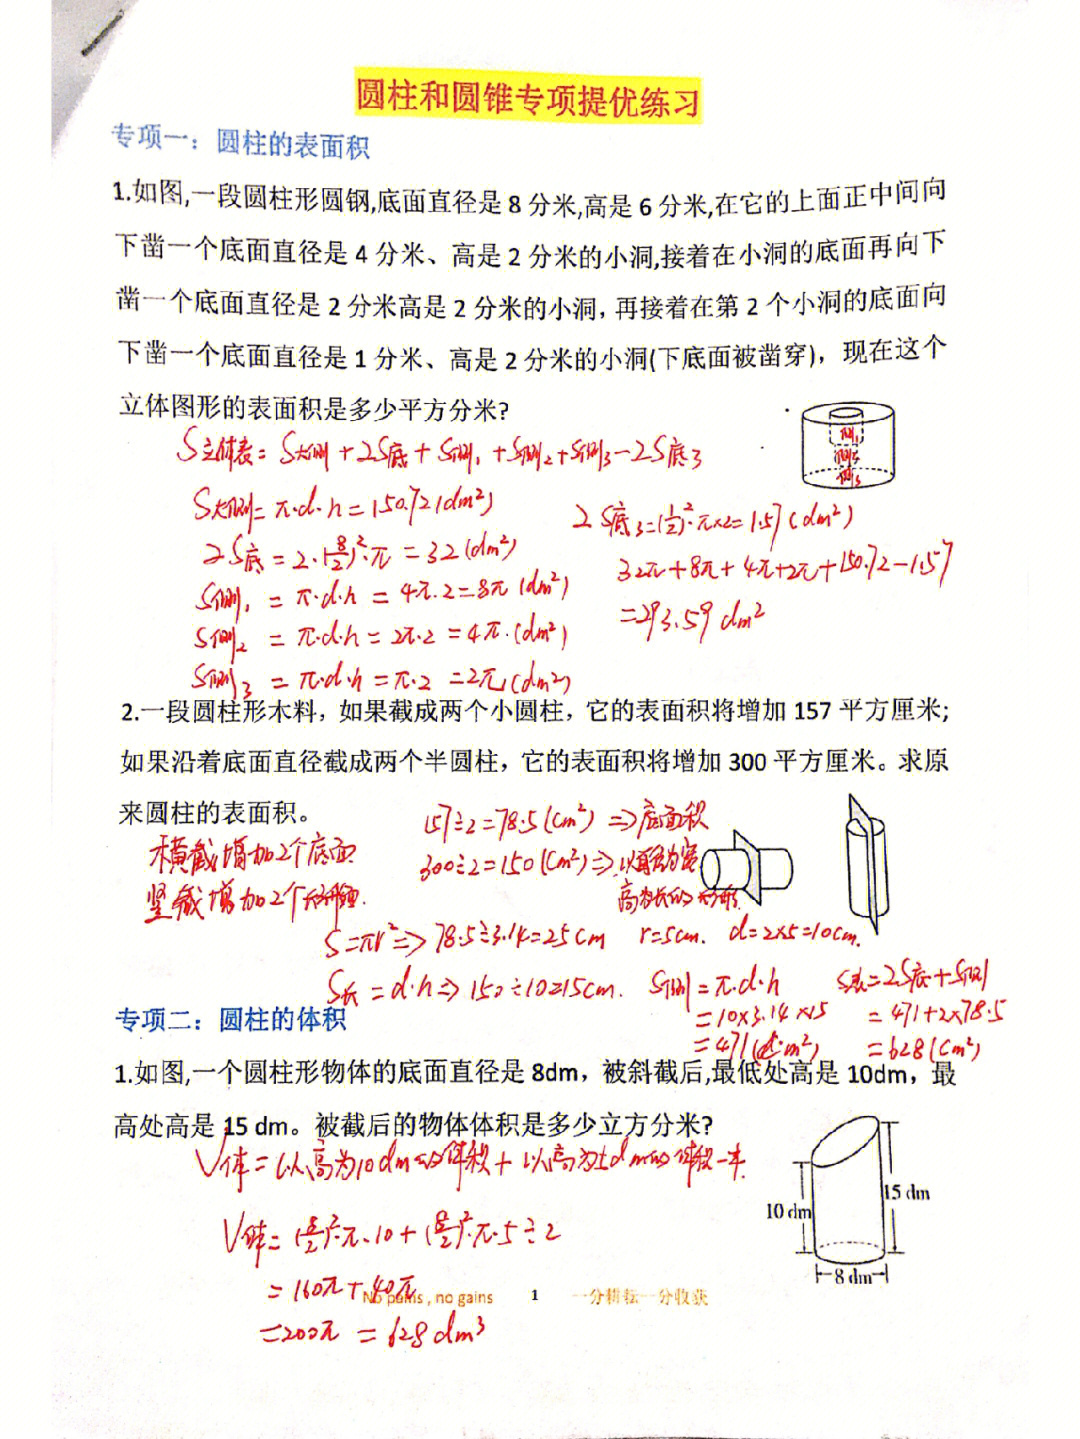 圆柱和圆锥专项提优练习
专项一：圆柱的表面积
1.如图,一段圆柱形圆钢,底面直径是8分米,高是6分米,在它的上面正中间向
下凿一个底面直径是4分米、高是2分米的小洞,接着在小洞的底面再向下
凿一个底面直径是2分米高是2分米的小洞，再接着在第2个小洞的底面向
下凿一个底面直径是1分米、高是2分米的小洞(下底面被凿穿)，现在这个
立体图形的表面积是多少平方分米?
S立体表=S大侧+2S底+S侧1+S侧2+S侧3-2S底3
侧1
侧2
侧3
S大侧=π·d·h=150.72(dm²)
2S底=2·(8/2)²·π=32(dm²)
S侧1=π·d·h=4π·2=8π(dm²)
S侧2=π·d·h=2π·2=4π·(dm²)
S侧3=π·d·h=π·2=2π(dm²)
2S底3=(1/2)²·π×2=1.57(dm²)
32π+8π+4π+2π+150.72-1.57
=293.59dm²
2.一段圆柱形木料，如果截成两个小圆柱，它的表面积将增加157平方厘米;
如果沿着底面直径截成两个半圆柱，它的表面积将增加300平方厘米。求原
来圆柱的表面积。
157÷2=78.5(cm²)⇒底面积
横截增加2个底面
300÷2=150(cm²)⇒以直径为宽
竖截增加2个长方形面.
高为长的长方形.
S=πr²⇒78.5÷3.14=25cm r=5cm. d=2×5=10cm.
S长=d·h⇒150÷10=15cm.
S侧=π·d·h
=10×3.14×15
=471(cm²)
S表=2S底+S侧
=471+2×78.5
=628(cm²)
专项二：圆柱的体积
1.如图,一个圆柱形物体的底面直径是8dm，被斜截后,最低处高是10dm，最
高处高是15 dm。被截后的物体体积是多少立方分米?
V体=以高为10dm的体积+以高为5dm的体积一半.
V体=(8/2)²·π·10+(8/2)²·π·5÷2
=160π+40π
=200π=628dm³
10 dm
15 dm
8 dm
No pains , no gains 1 一分耕耘一分收获